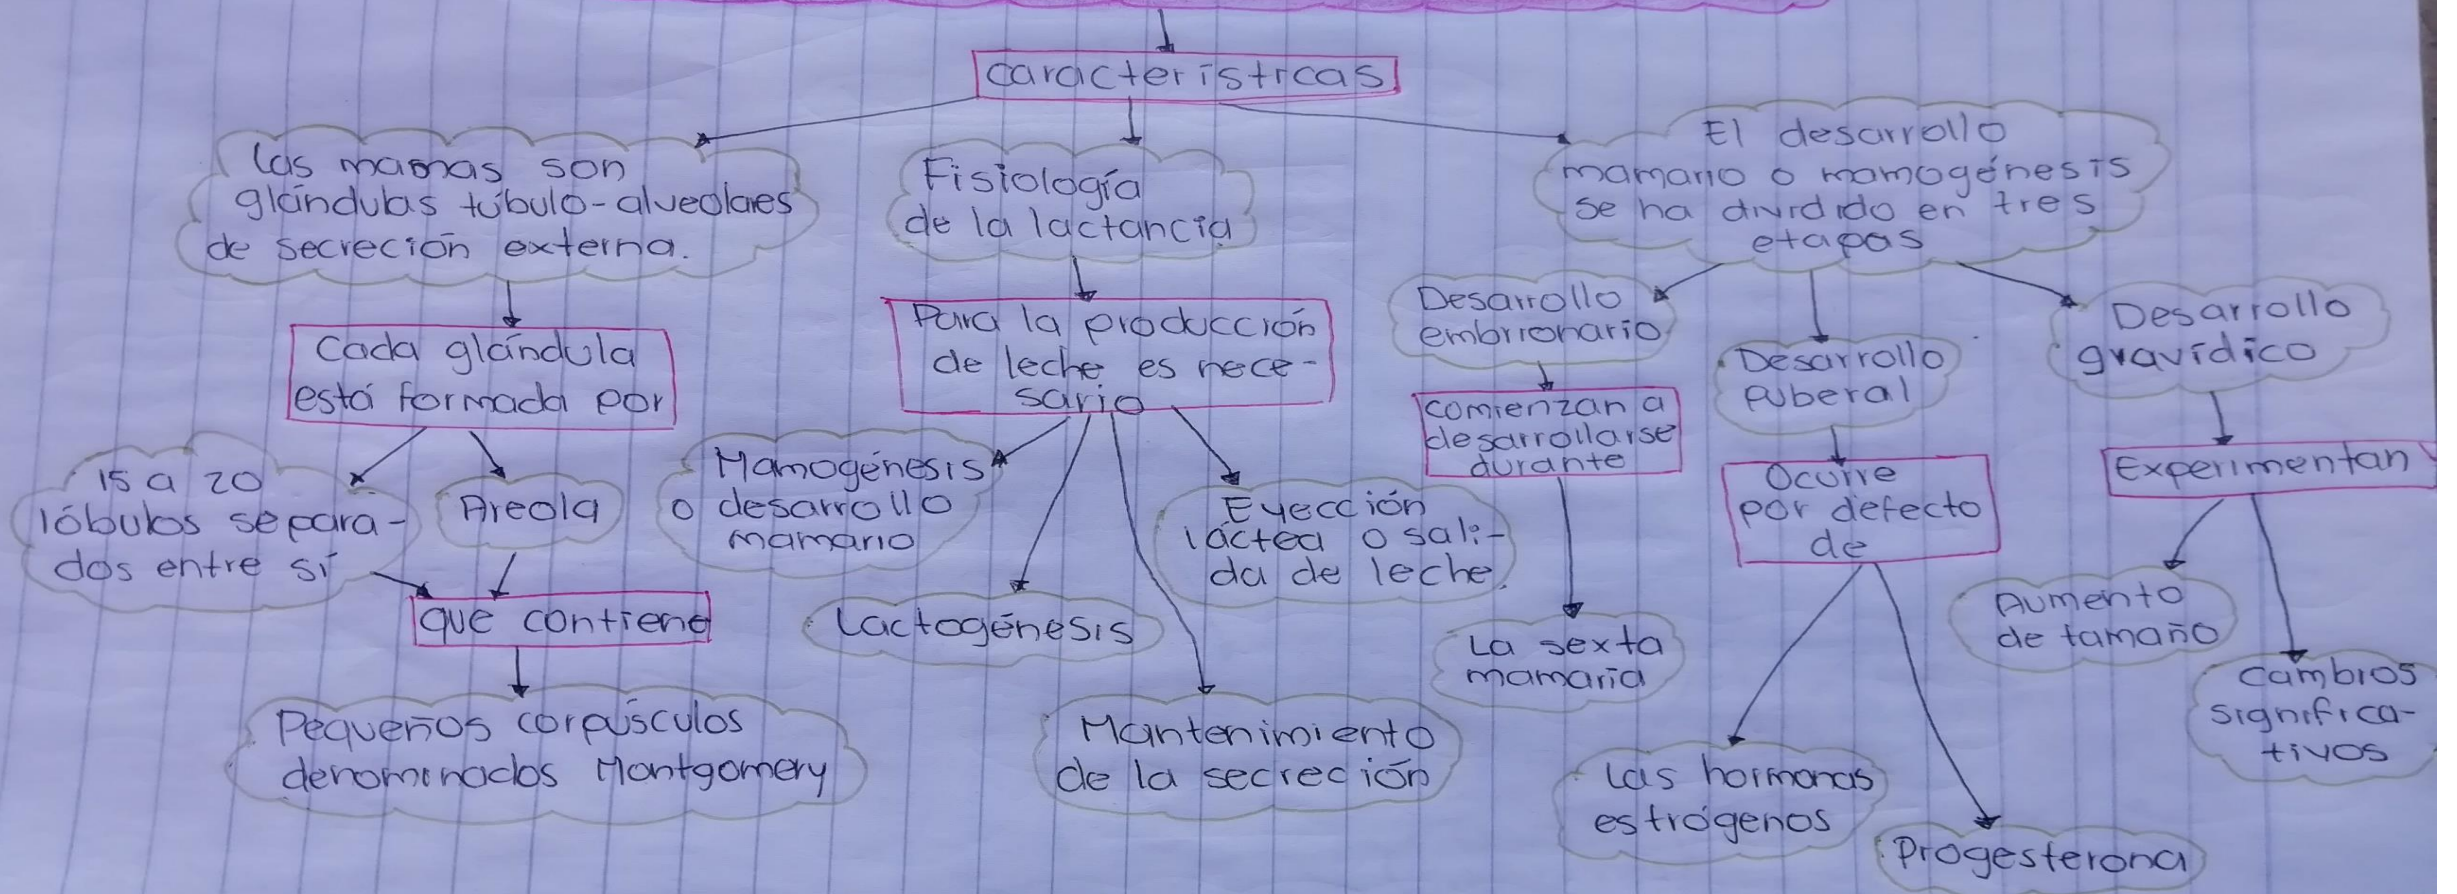 características
Las mamas son
glándulas túbulo-alveolares
de secreción externa.
Cada glándula
está formada por
15 a 20
lóbulos separa-
dos entre sí
Areola
que contiene
Pequeños corpúsculos
denominados Montgomery
Fisiología
de la lactancia
Para la producción
de leche es nece-
sario
Mamogénesis
o desarrollo
mamario
Lactogénesis
Mantenimiento
de la secreción
Eyección
láctea o sali-
da de leche.
El desarrollo
mamario o mamogénesis
se ha dividido en tres
etapas
Desarrollo
embrionario
comienzan a
desarrollarse
durante
La sexta
mamaria
Desarrollo
puberal
Ocurre
por defecto
de
Las hormonas
estrógenos
Progesterona
Desarrollo
gravídico
Experimentan
Aumento
de tamaño
cambios
significa-
tivos